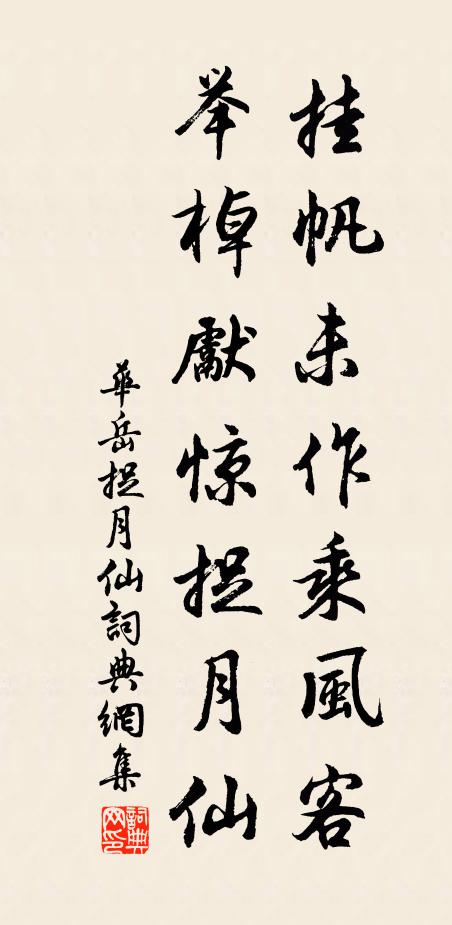 挂帆未作乘風客
举棹獻惊捉月仙
華岳捉月仙詞典網集
詞典网印